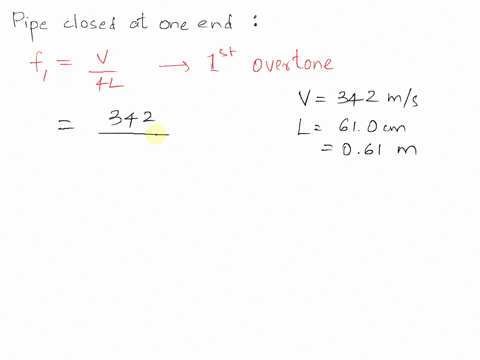 Pipe closed at one end :
f₁ = V/4L → 1st overtone
V = 342 m/s
= 342
L = 61.0 cm
= 0.61 m